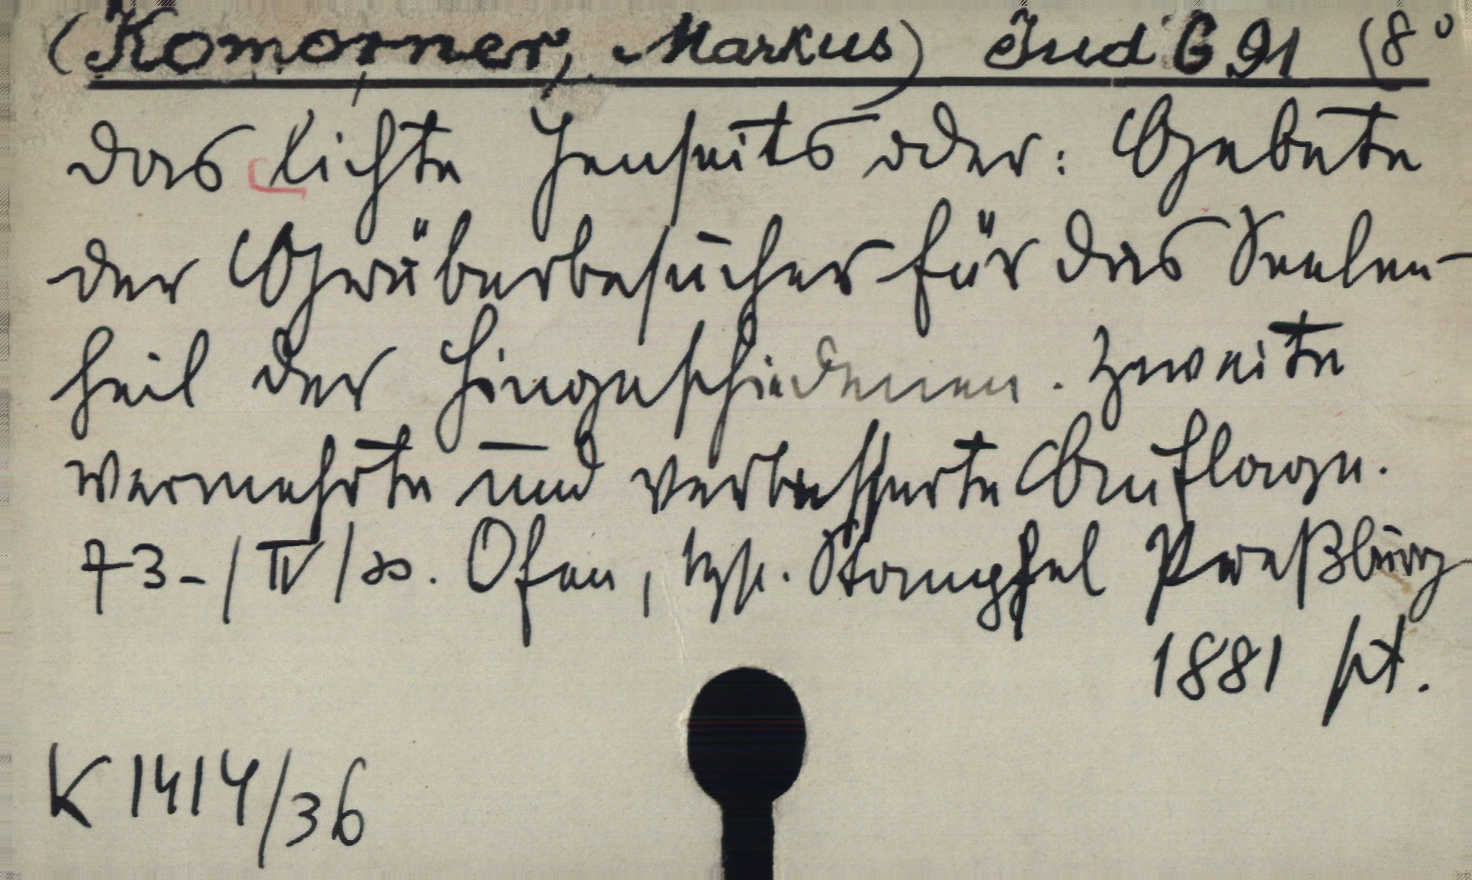 (Komorner, Markus) Jud G 91 (8°
Das lichte Jenseits oder: Gebete
der Gräberbesucher für das Seelen-
heil der Hingeschiedenen. Zweite
vermehrte und verbesserte Auflage.
73 - / IV / Ofen, Stampfel Preßburg
1881 pt.
K 1414/36